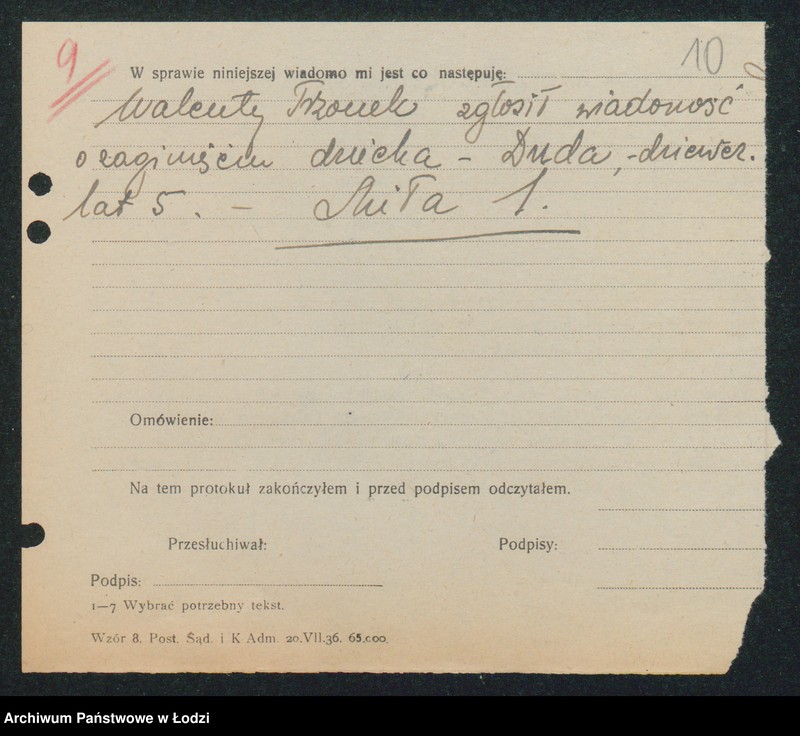 9
10
W sprawie niniejszej wiadomo mi jest co następuję:
Walenty Trzonek zgłosił wiadomość
o zaginięciem dziecka – Duda, - dziewcz.
lat 5. – Miła 1.
Omówienie:
Na tem protokuł zakończyłem i przed podpisem odczytałem.
Przesłuchiwał:
Podpisy:
Podpis:
1—7 Wybrać potrzebny tekst.
Wzór 8. Post. Sąd. i K Adm. 20.VII.36. 65.000.
Archiwum Państwowe w Łodzi